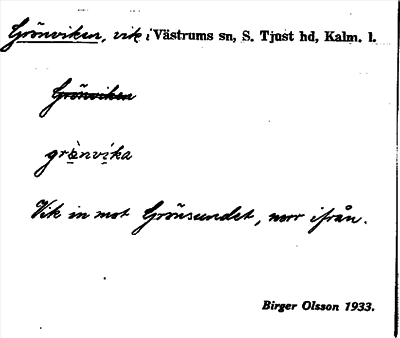 Grönviken, vik i Västrums sn, S. Tjust hd, Kalm. l.
Grönviken
grö̀nvika
Vik in mot Grönsundet, norr ifrån.
Birger Olsson 1933.